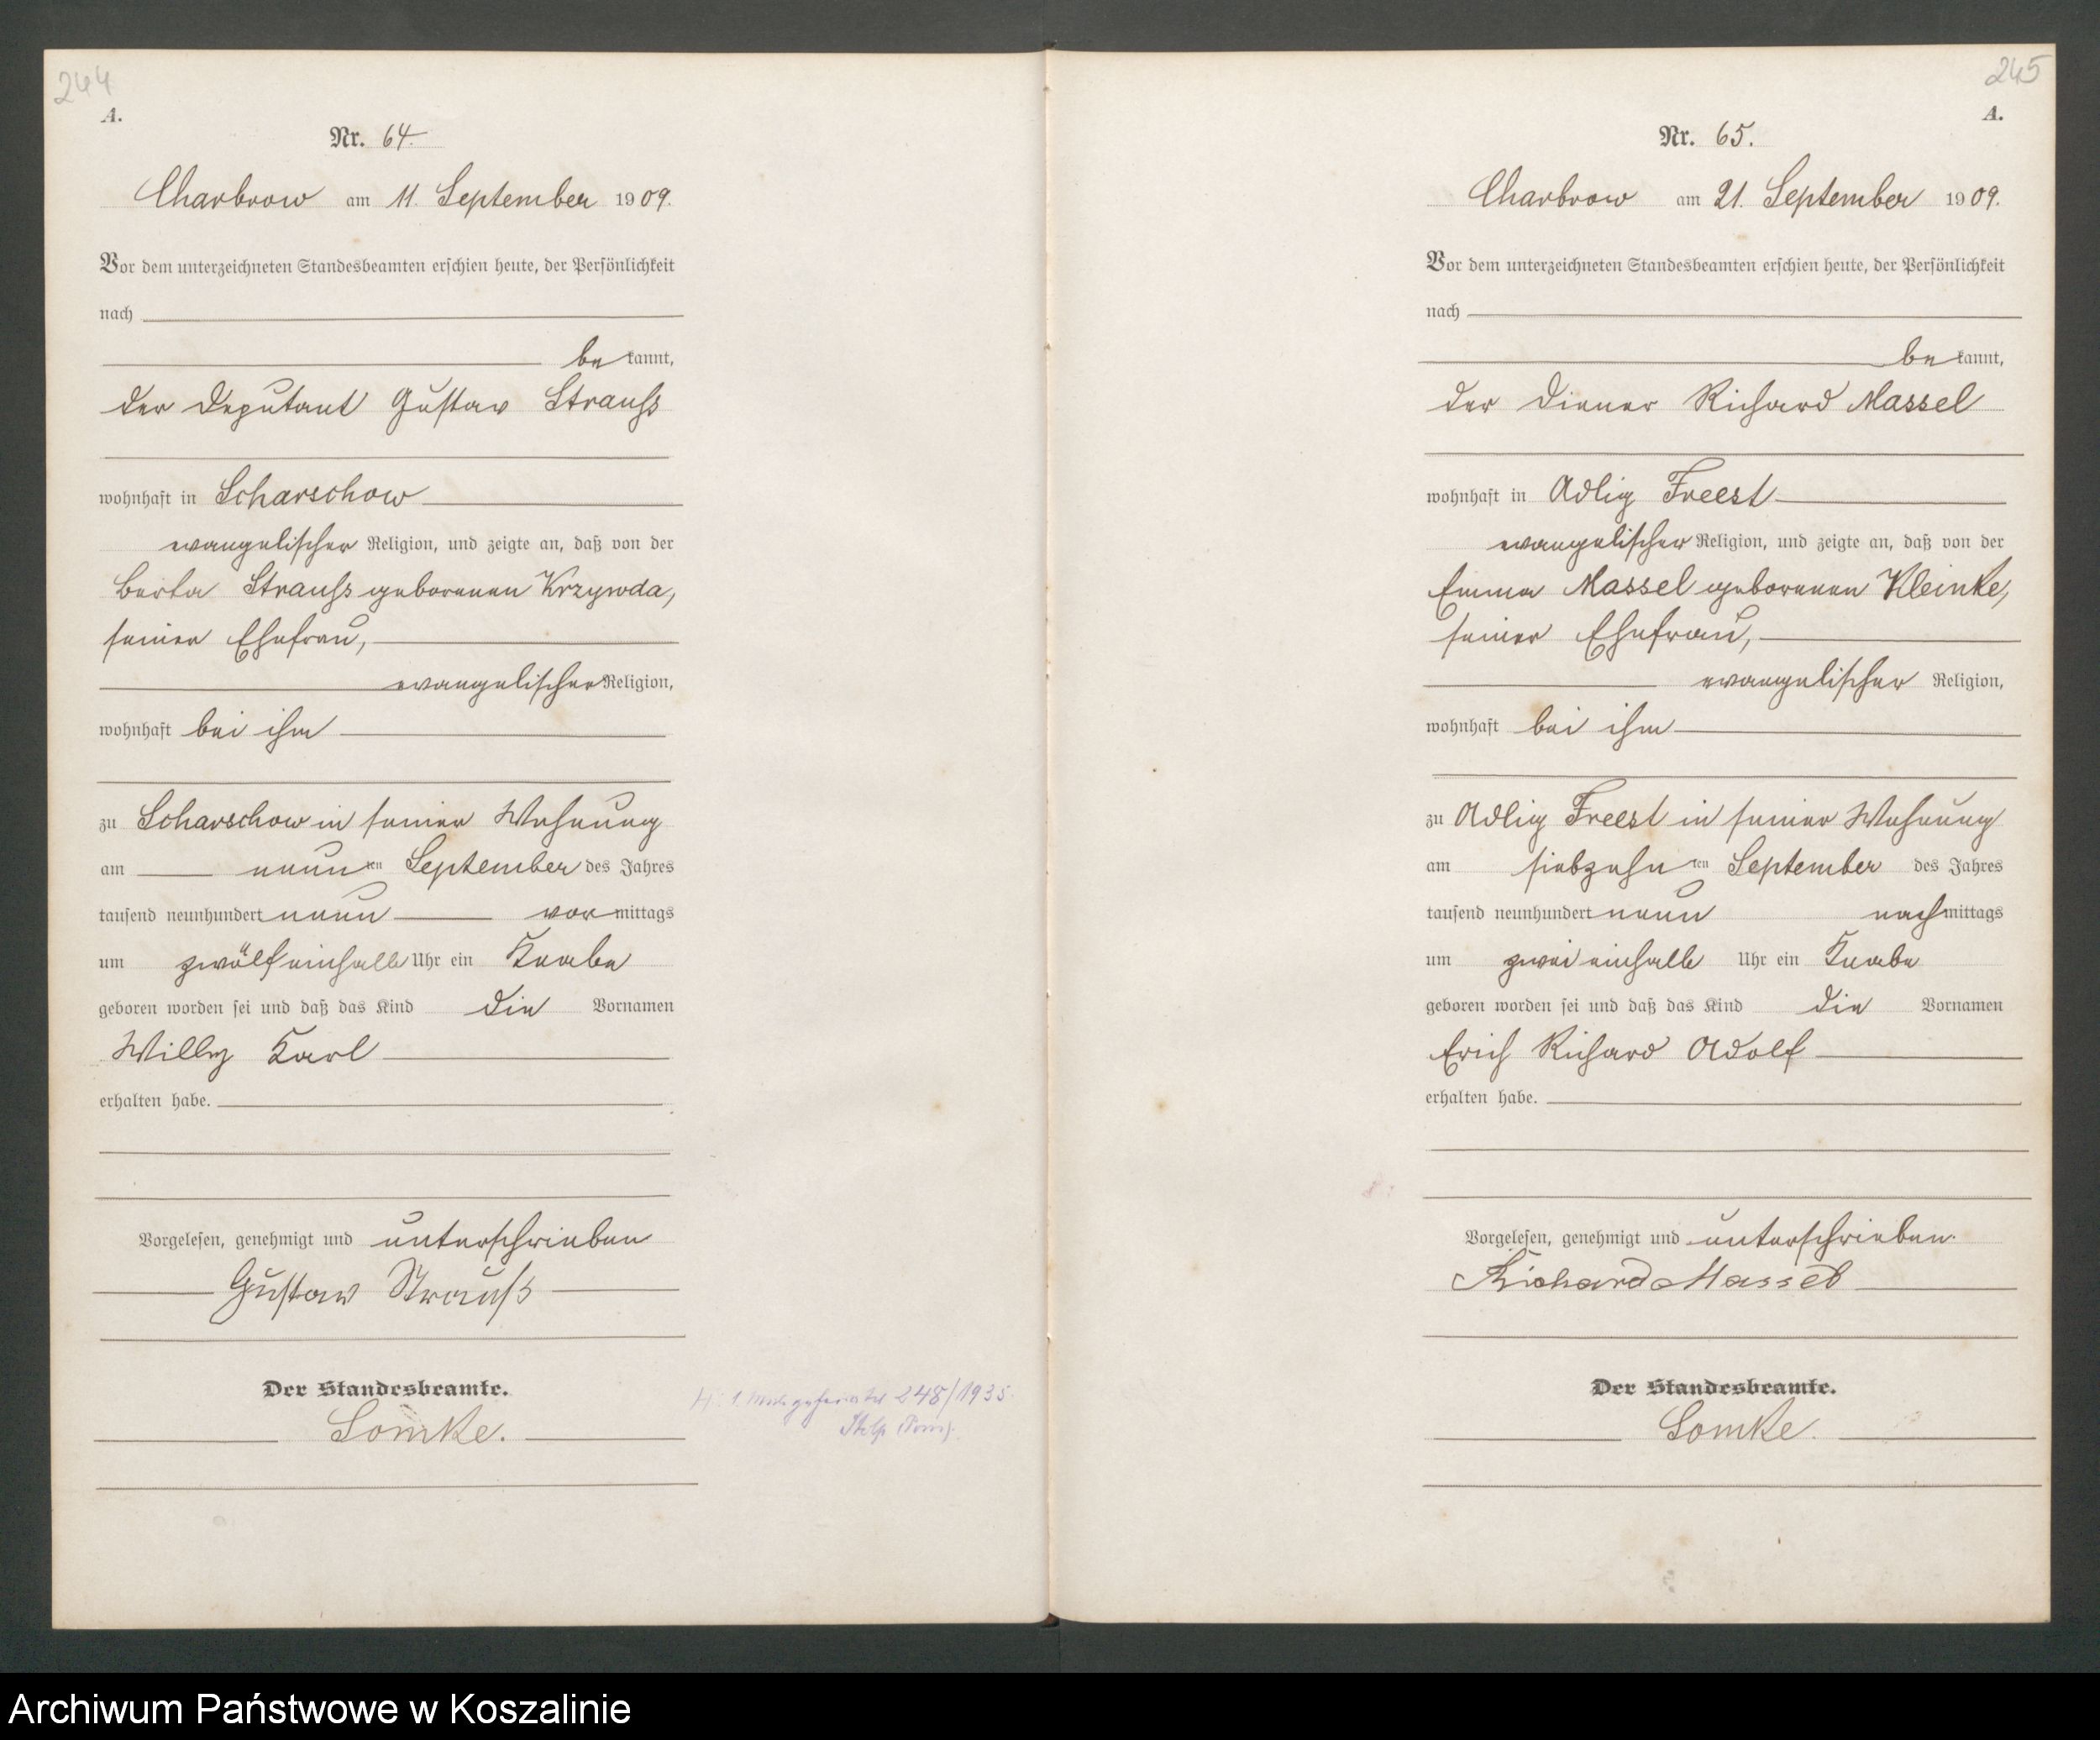 244
A.
Nr. 64.
Charbrow am 11. September 1909.
Vor dem unterzeichneten Standesbeamten erschien heute, der Persönlichkeit
nach
bekannt,
der Deputant Gustav Strauß
wohnhaft in Scharschow
evangelischer Religion, und zeigte an, daß von der
Berta Strauß geborenen Krzywda,
seiner Ehefrau,
evangelischer Religion,
wohnhaft bei ihm
zu Scharschow in seiner Wohnung
am neunten September des Jahres
tausend neunhundert neun vormittags
um zwölfeinhalb Uhr ein Knabe
geboren worden sei und daß das Kind die Vornamen
Willy Karl
erhalten habe.
Vorgelesen, genehmigt und unterschrieben
Gustav Strauß
Der Standesbeamte.
Lomke.
248/1935
Stolp (Pom).
245
A.
Nr. 65.
Charbrow am 21. September 1909.
Vor dem unterzeichneten Standesbeamten erschien heute, der Persönlichkeit
nach
bekannt,
der Diener Richard Massel
wohnhaft in Adlig Freest
evangelischer Religion, und zeigte an, daß von der
Emma Massel geborenen Kleinke,
seiner Ehefrau,
evangelischer Religion,
wohnhaft bei ihm
zu Adlig Freest in seiner Wohnung
am siebzehnten September des Jahres
tausend neunhundert neun nachmittags
um zwei einhalb Uhr ein Knabe
geboren worden sei und daß das Kind die Vornamen
Erich Richard Adolf
erhalten habe.
Vorgelesen, genehmigt und unterschrieben.
Richard Massel
Der Standesbeamte.
Lomke.
Archiwum Państwowe w Koszalinie